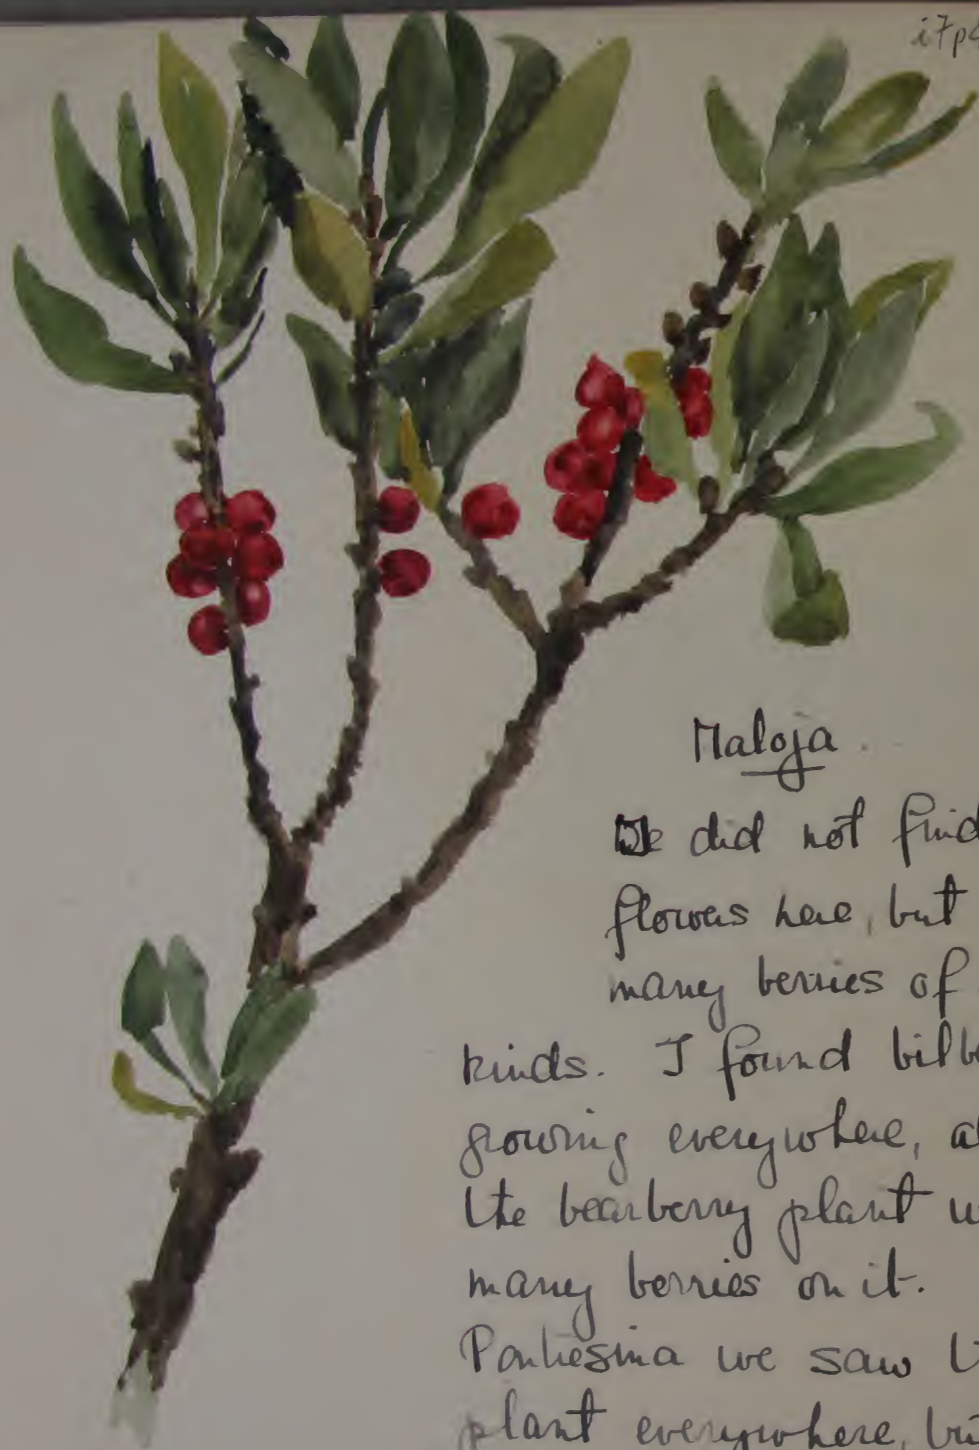 i7p
Maloja
We did not find
flowers here, but
many berries of
kinds. I found bilbe
growing everywhere, a
the bearberry plant w
many berries on it.
Pontresina we saw t
plant everywhere, but